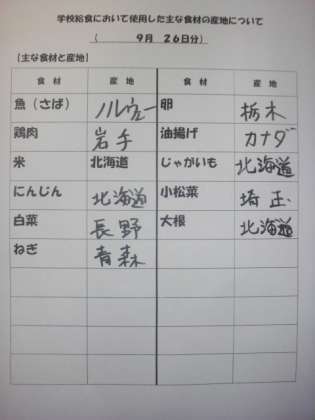 学校給食において使用した主な食材の産地について
(　　　9月　26日分)
【主な食材と産地】
食材　産地　食材　産地
魚（さば）　ノルウェー　卵　栃木
鶏肉　岩手　油揚げ　カナダ
米　北海道　じゃがいも　北海道
にんじん　北海道　小松菜　埼玉
白菜　長野　大根　北海道
ねぎ　青森